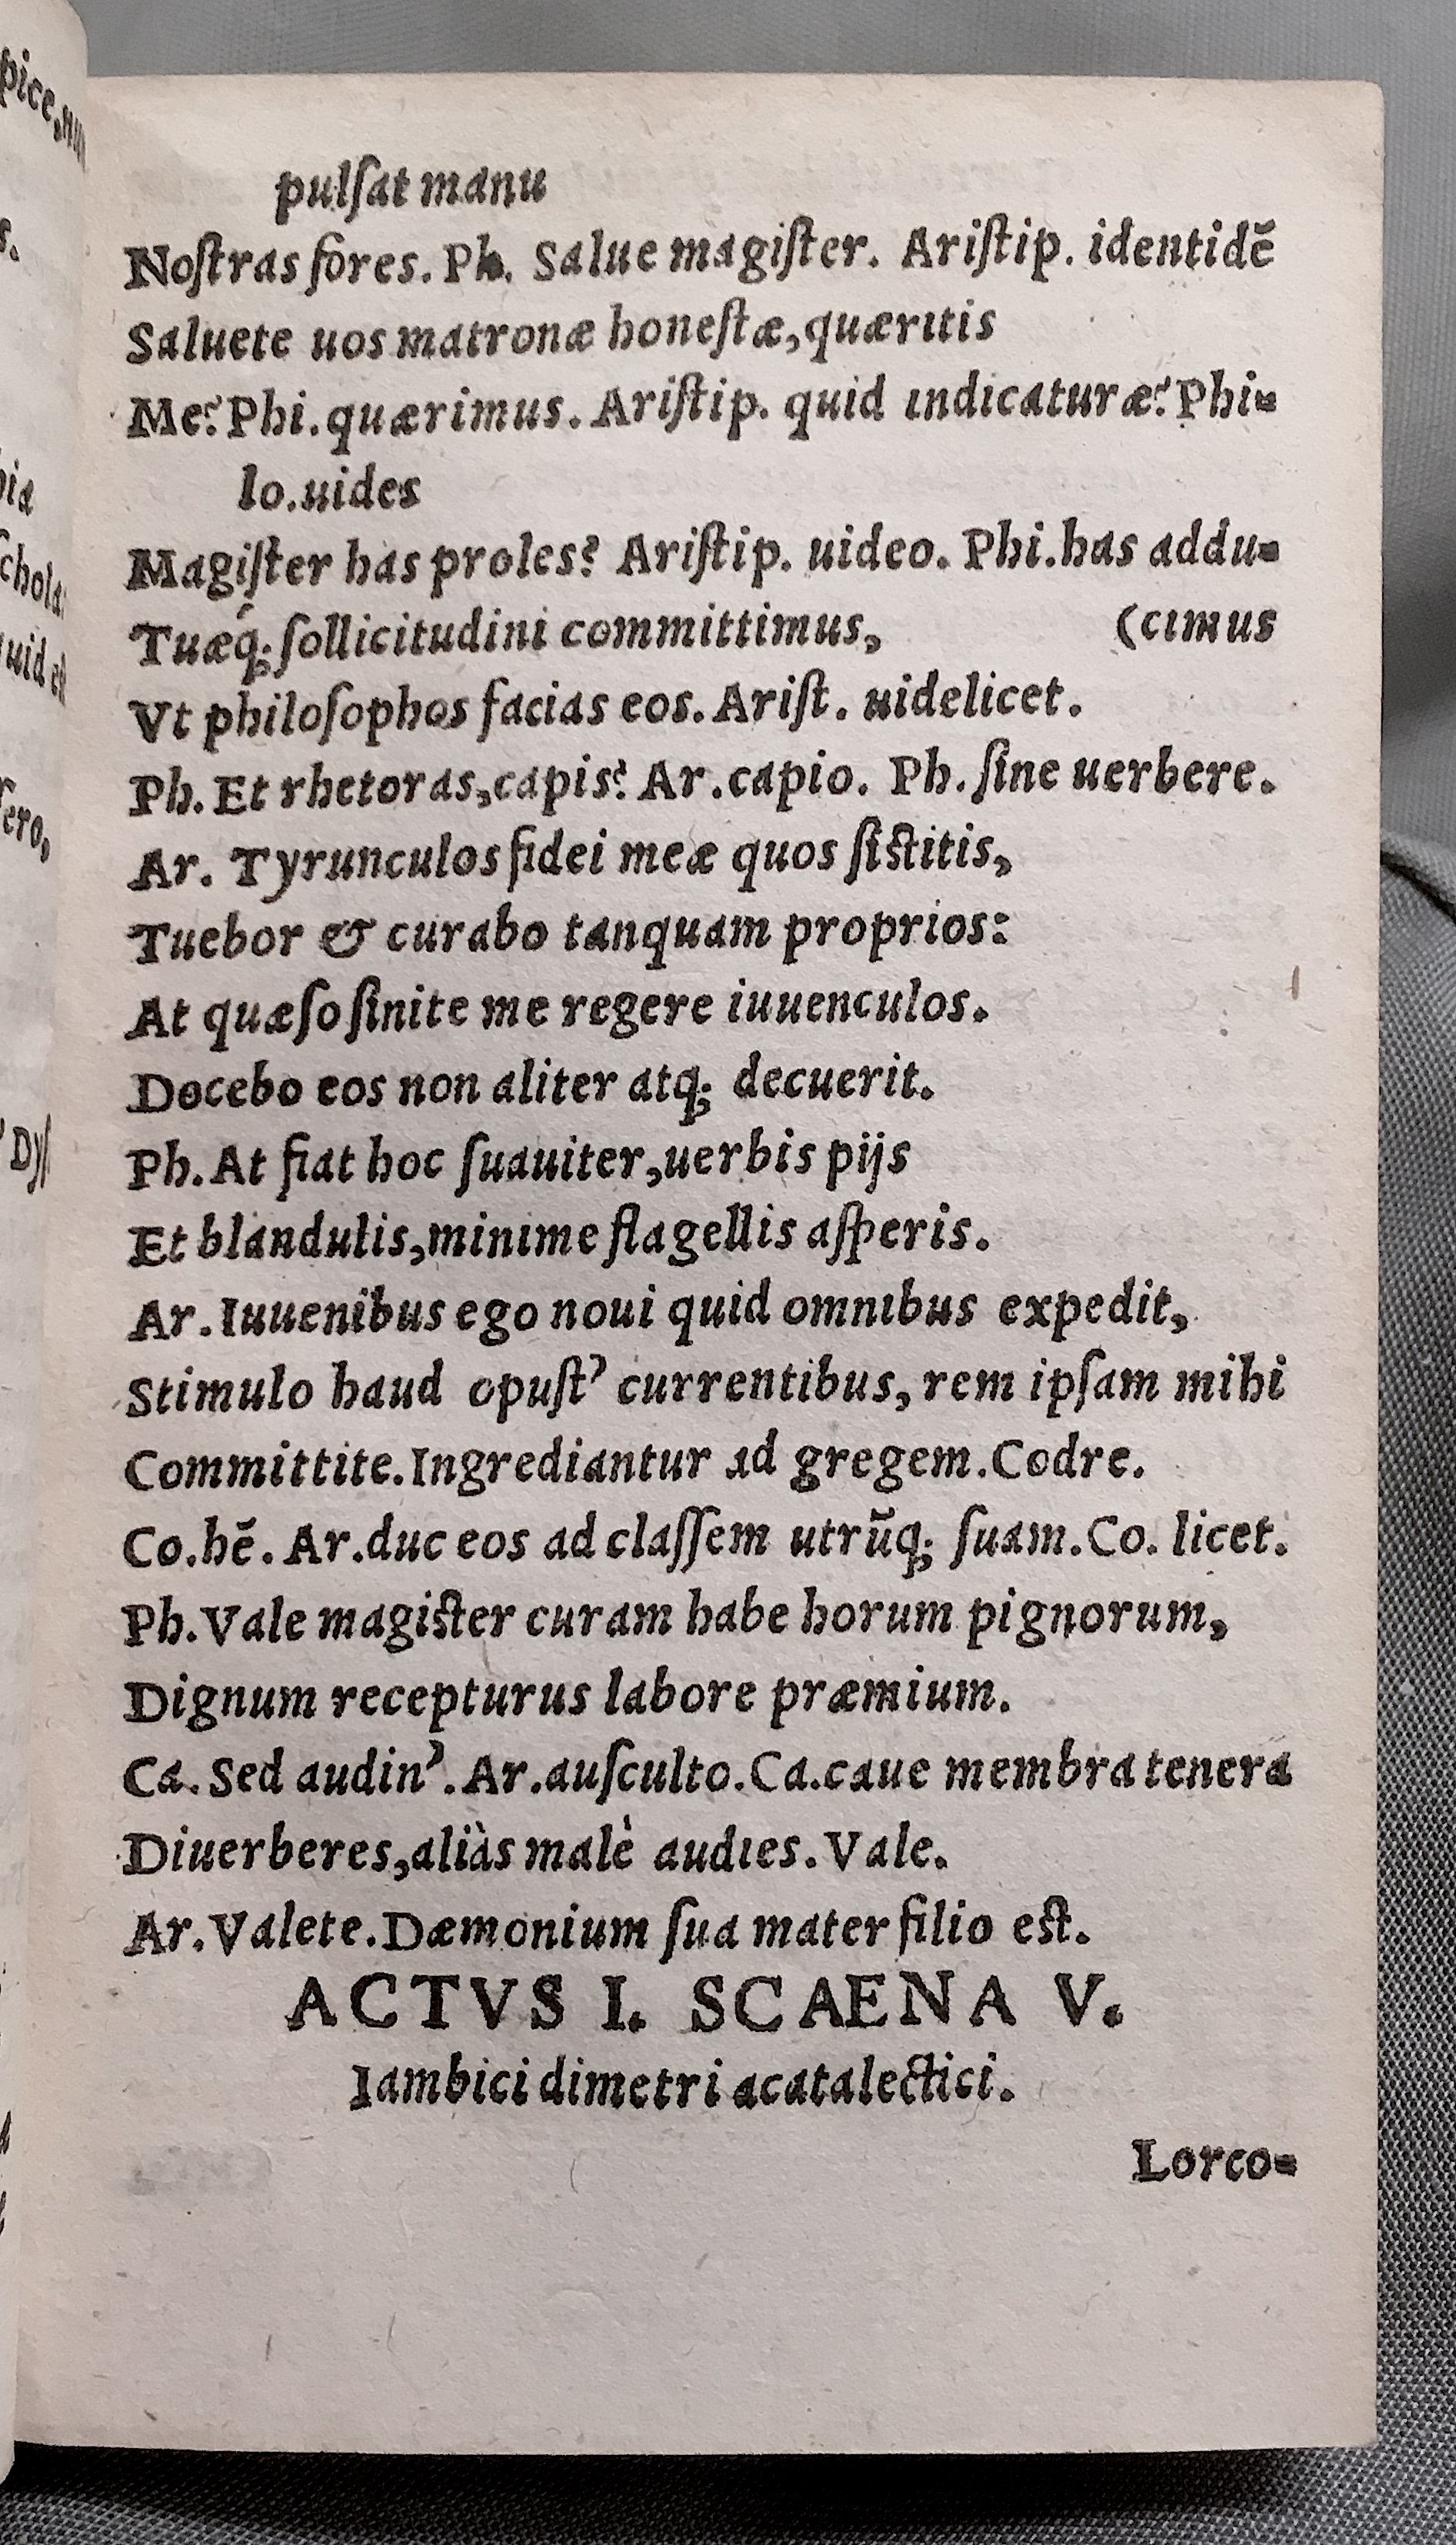 pulſat manu
Noſtras fores. Ph. Salue magiſter. Ariſtip. identidē
Saluete uos matronæ honeſtæ, quæritis
Me? Phi. quærimus. Ariſtip. quid indicaturæ? Phi-
lo. uides
Magiſter has proles? Ariſtip. uideo. Phi. has addu-
Tuæq́; ſollicitudini committimus, (cimus
Vt philoſophos facias eos. Ariſt. uidelicet.
Ph. Et rhetoras, capis? Ar. capio. Ph. ſine uerbere.
Ar. Tyrunculos fidei meæ quos ſiſtitis,
Tuebor & curabo tanquam proprios:
At quæſo ſinite me regere iuuenculos.
Docebo eos non aliter atq; decuerit.
Ph. At fiat hoc ſuauiter, uerbis pijs
Et blandulis, minime flagellis aſperis.
Ar. Iuuenibus ego noui quid omnibus expedit,
Stimulo haud opuſt’ currentibus, rem ipſam mihi
Committite. Ingrediantur ad gregem. Codre.
Co. hē. Ar. duc eos ad claſſem utrūq; ſuam. Co. licet.
Ph. Vale magiſter curam habe horum pignorum,
Dignum recepturus labore præmium.
Ca. Sed audin’. Ar. auſculto. Ca. caue membra tenera
Diuerberes, aliàs malè audies. Vale.
Ar. Valete. Dæmonium ſua mater filio eſt.
ACTVS I. SCAENA V.
Iambici dimetri acatalectici.
Lorco-